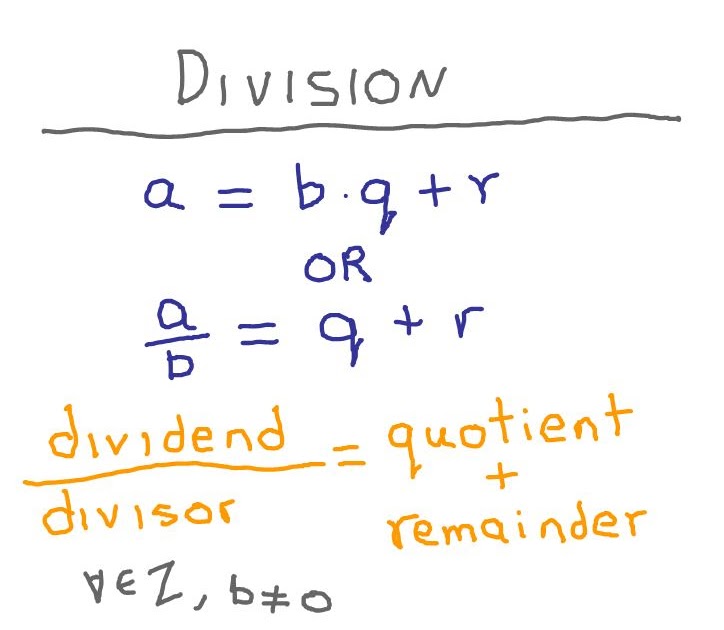 DIVISION
a = b·q + r
OR
a/b = q + r
dividend/divisor = quotient + remainder
∀∈Z, b≠0